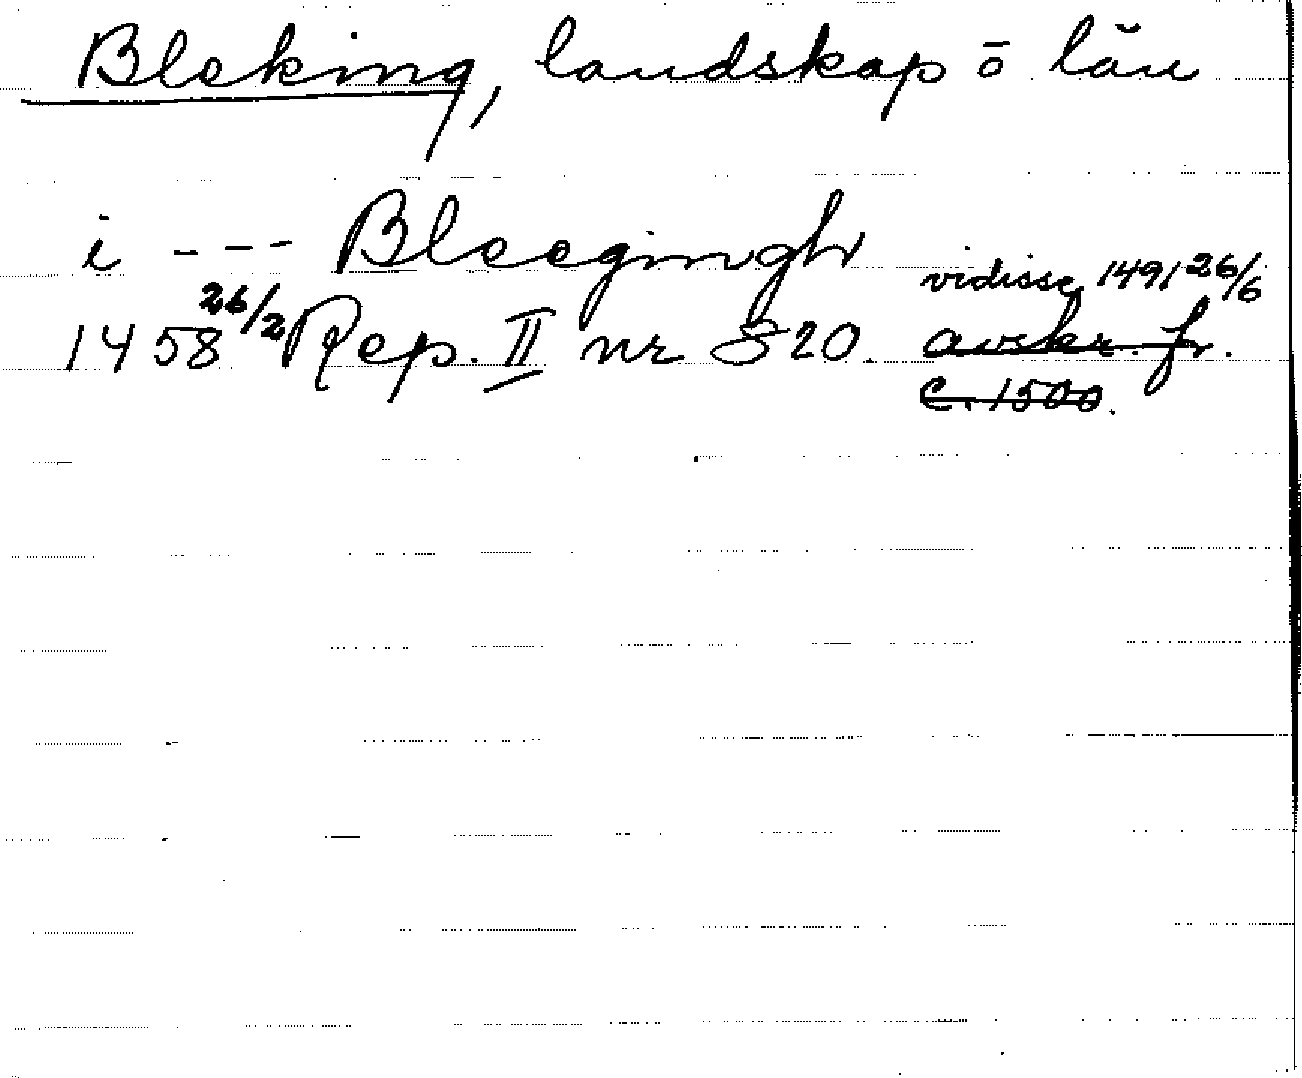 Bleking, landskap ō län
i --- Bleegingh
vidisse 1491 26/6
1458 26/2 Rep. II nr 820. avskr. fr.
c. 1500.